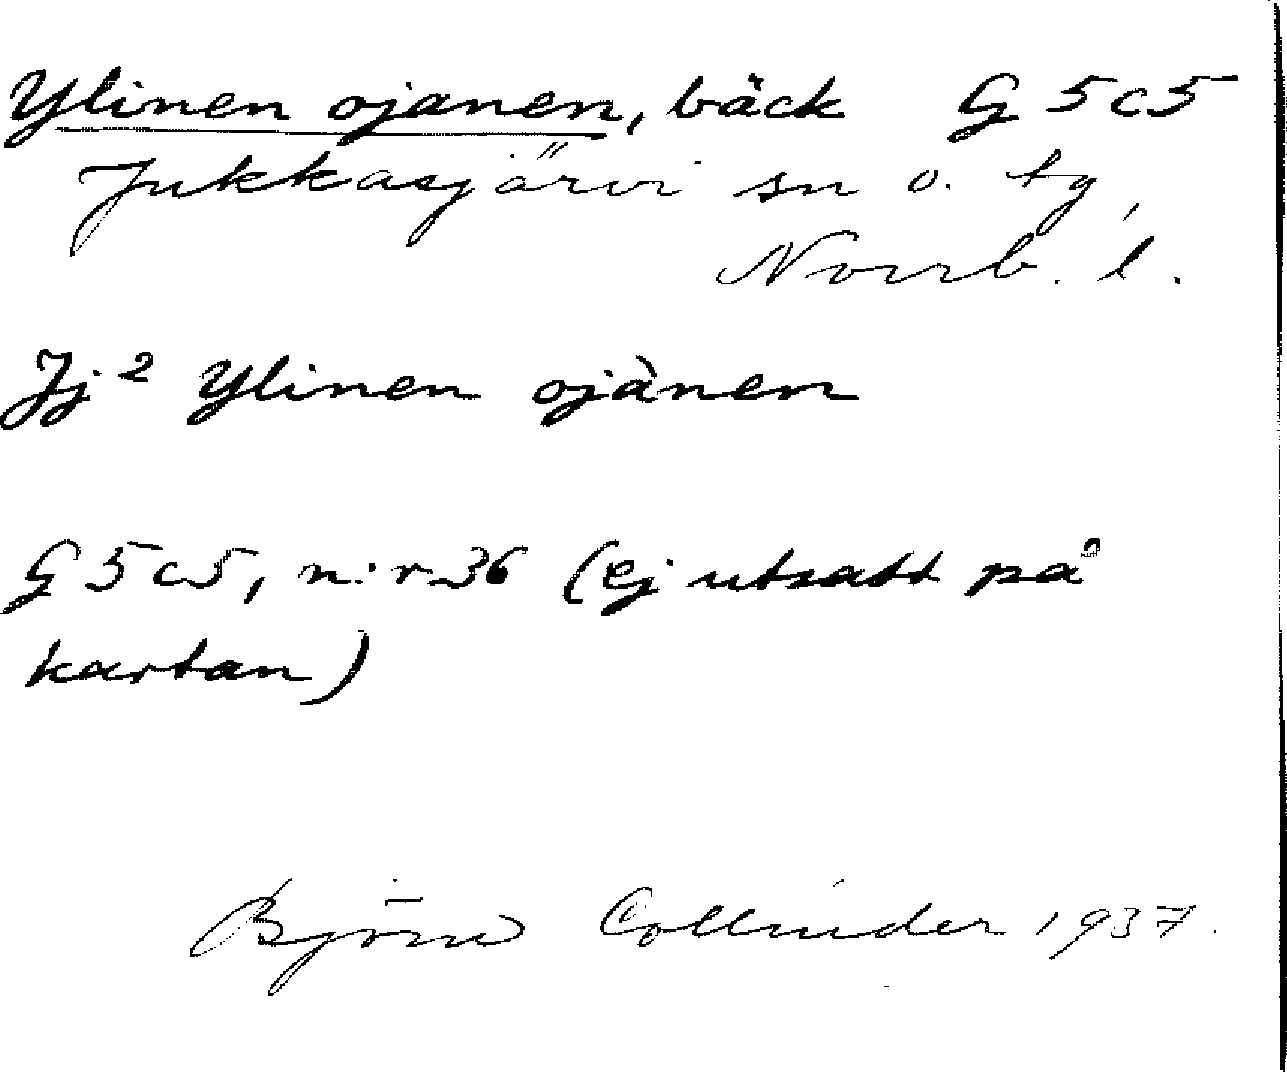 Ylinen ojanen, bäck G 5 c 5
Jukkasjärvi sn o. tg,
Norrb. l.
Jj² Ylinen ojànen
G 5 c 5, n:r 36 (ej utsatt på
kartan)
Björn Collinder 1937.